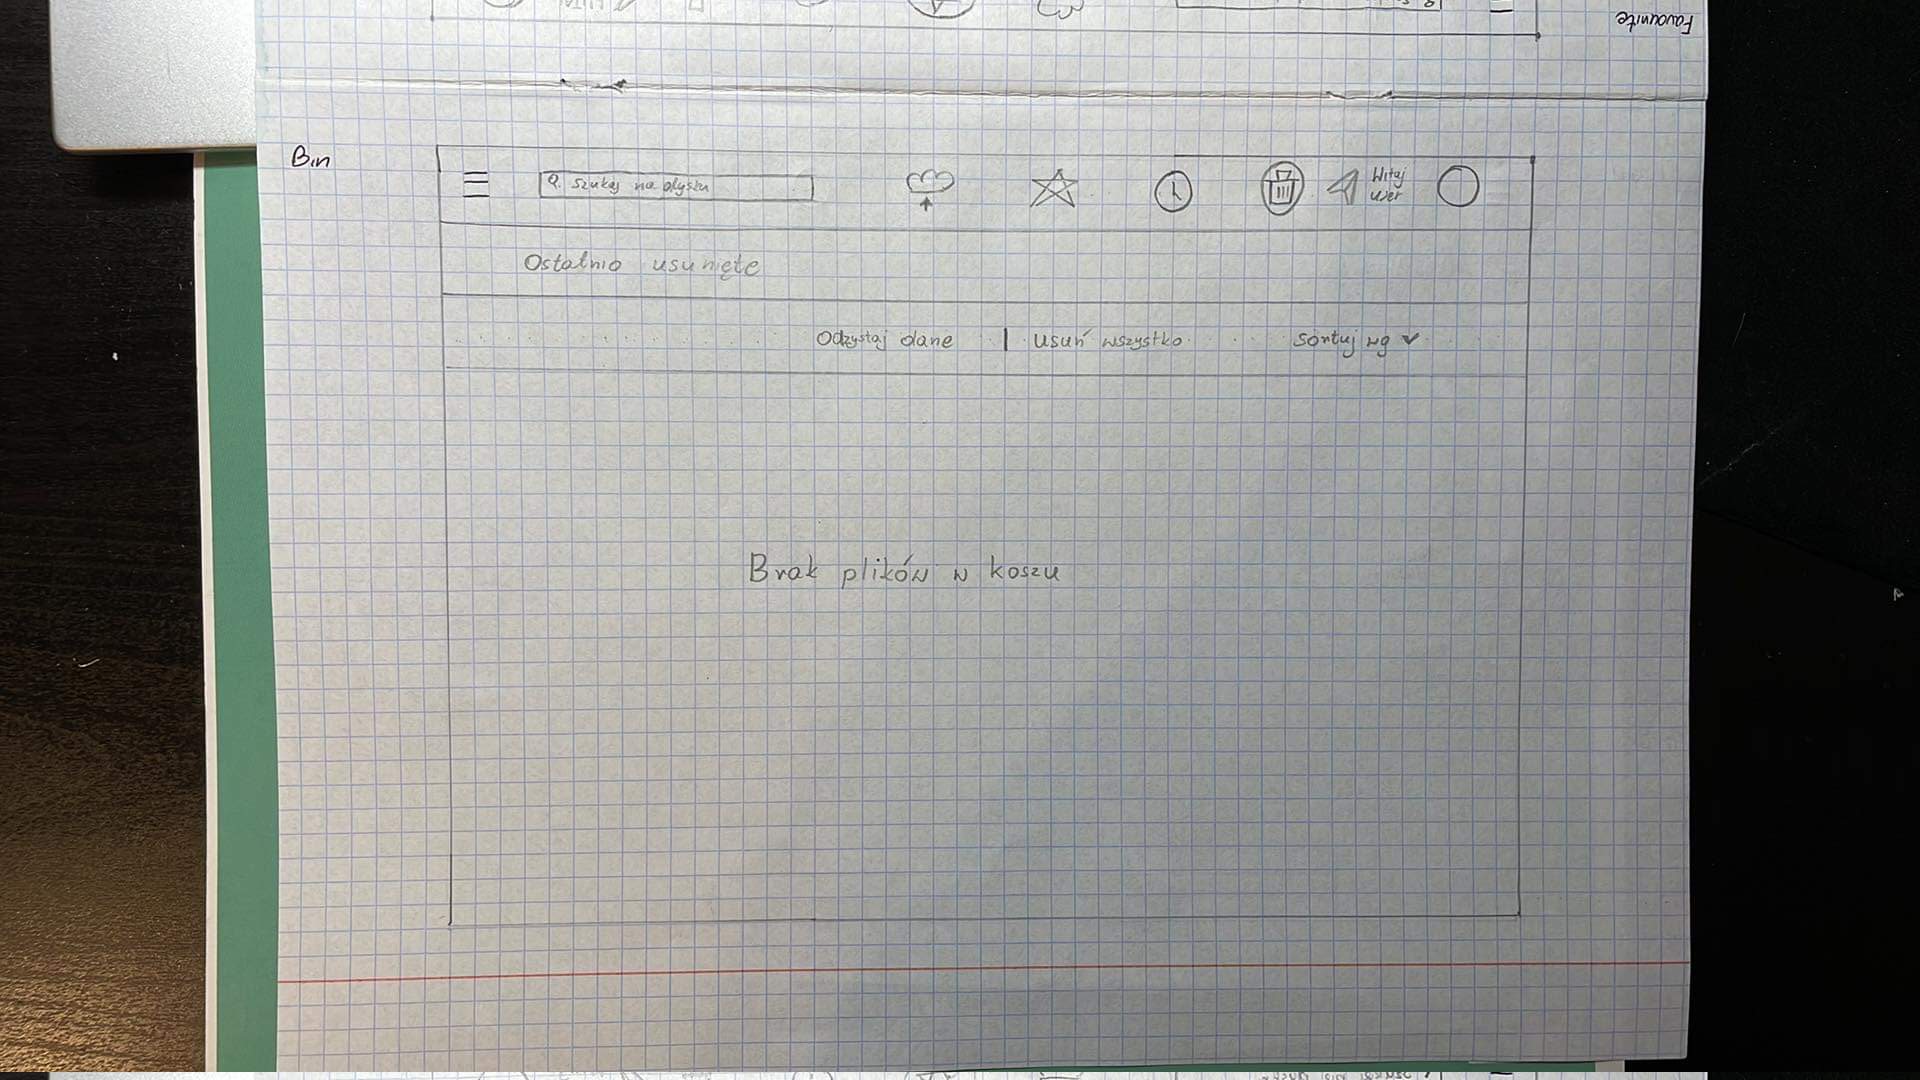 Favourite
Bin
Szukaj na dysku
Witaj
user
Ostatnio usunięte
Odzystaj dane | Usuń wszystko Sortuj wg
Brak plików w koszu